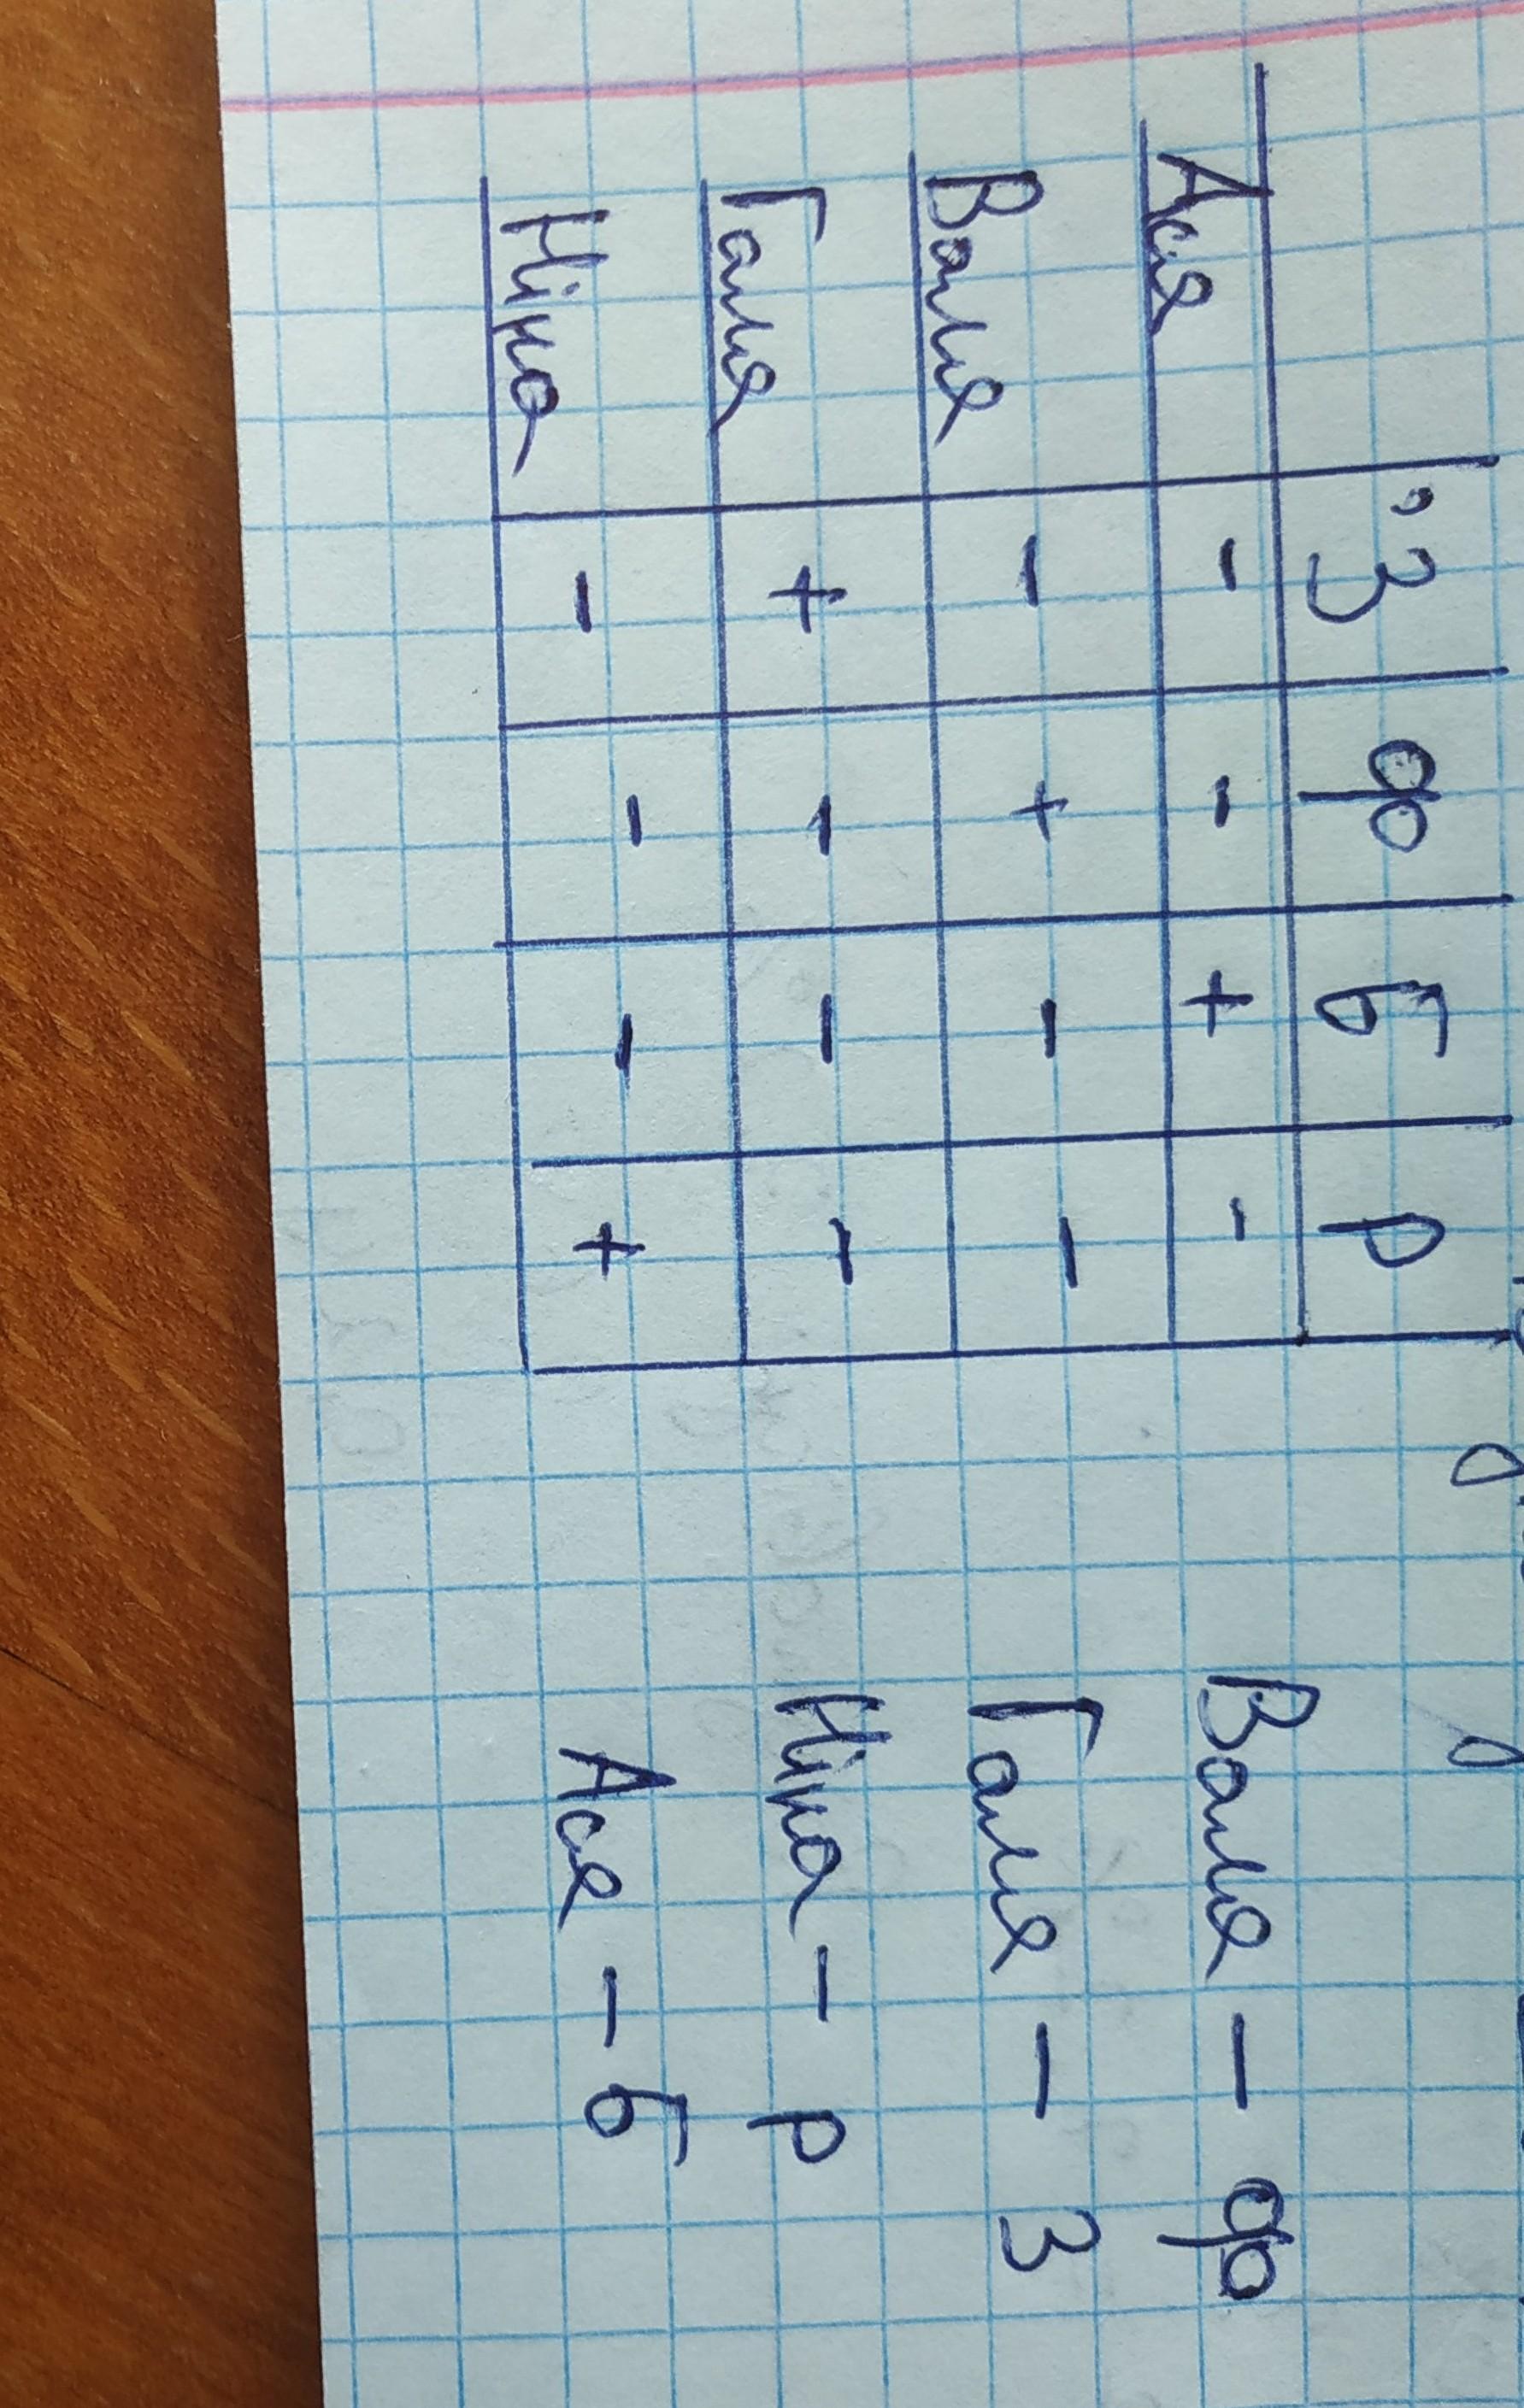 з ф б р
Ася - - + -
Валя - + - -
Галя + - - -
Ніка - - - +
Валя - ф
Галя - з
Ніка - р
Ася - б